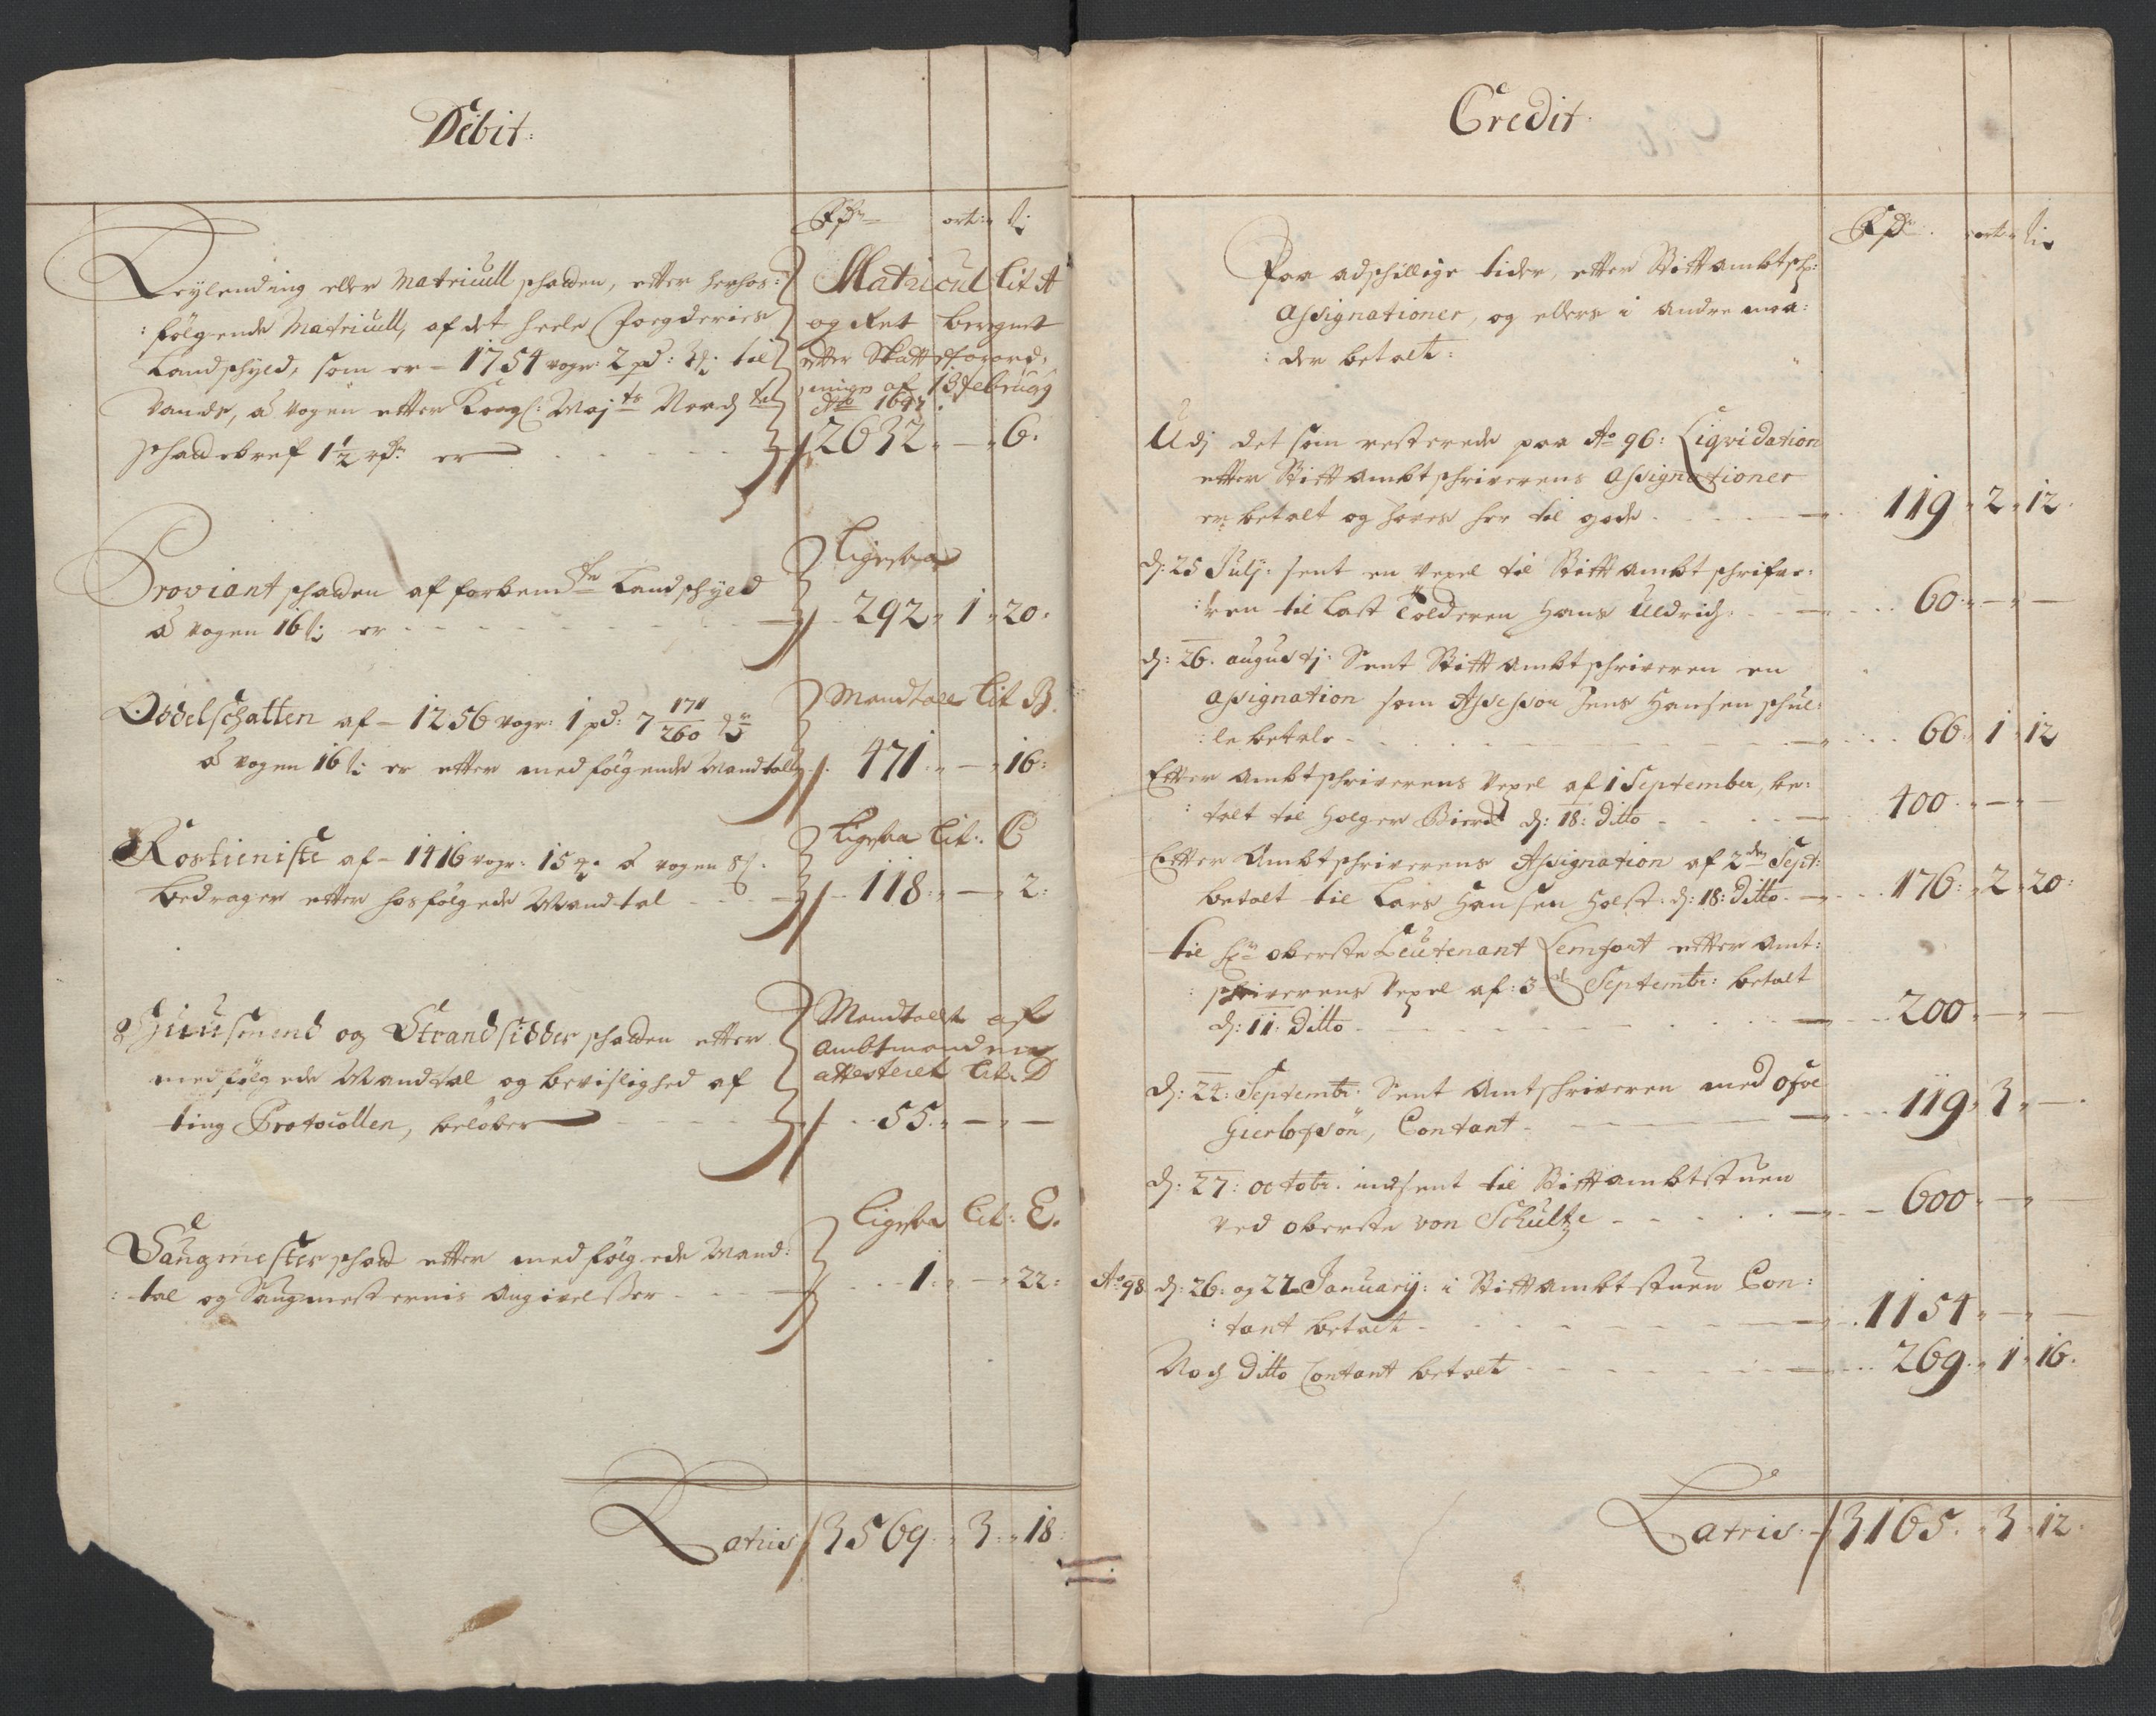 Debit:
Rdr ort: ß:
Leylending eller Matricull schatten, efter herhos:
:følgende Matricull, af det heele Foegderies
Landschyld, som er - 1754 voger: 2 pd: til
Vands, a vogen efter Kongl: Mayts
schattebref 1½ rdr er
Matricul Lit A
og Ret beregnet
efter Skatte forord,
ninger af 13 February
Ao 1697.
2632 " - " 6:
Proviant schatten af forbemte Landschyld
a vogen 16 ß: er
Ligesaa
292 " 1 " 20:
Oddelschatten af - 1256 voger: 1 pd: 7 171/260
a vogen 16 ß: er efter medfølgende Mandtall
Mandtall Lit B.
471: " - " 16:
Rostieniste af - 1416 voger: 15 a vogen 8 ß.
bedrager efter hosfølgede Mandtal
Ligesaa Lit: C
118: " - " 2:
Huusmend og Strandsidder schatten efter
medfølgede Mandtal og bevislighed af
ting Protocollen, beløber
Mandtallet af
Ambtmanden
attesteret Lit: D
55: " - " -
Saugmester schatt efter medfølgede Mand:
:tal og Saugmesternis Angivelser
Ligesaa Lit: E.
1: " - " 22:
Latris 3569: " 3: " 18:
Credit
Rdr ort: ß:
Paa adschillige tider, efter Stiftambtsch:
Assignationer, og ellers i andre maa:
:der betalt:
Udj det som resterede paa Ao 96: Liqvidation
efter Stiftambtschriverens Assignationer
er betalt og høres her til gode 119 " 2 " 12.
d: 25 Julj: sent en Vexel til Stiftambtschrifue:
:ren til last Tolderen Hans Uldrich: 60: " - " -
d: 26. augustj: Sent Stiftambtschriveren en
Assignation som Assessor Jens Hansen schul:
:le betale 66: 1 " 12
Efter Ambtschriverens Vexel af 1 September, be:
:talt til Holger d: 18: ditto 400 " - " -
Efter Ambtschriverens Assignation af 2den Sept:
betalt til Lars Hansen Holst: d: 18: ditto. 176: " 2 " 20:
til Hr oberste Leutenant Lemfort efter Amt:
:schriverens Vexel af: 3de Septembr: betalt
d: 11: ditto 200 " - " -
d: 24: Septembr: Sent Amtschriveren med
Contant 119 " 3 " -
d: 27: octobr: indsent til Stiftambtstuen
ved oberste von Schultz 600 " - " -
Ao 98 d: 26: og 27 January: i Stiftambtstuen Con:
:tant betalt 1154 " - " -
Noch ditto Contant betalt 269: " 1 " 16.
Latris: 3165: " 3 " 12: